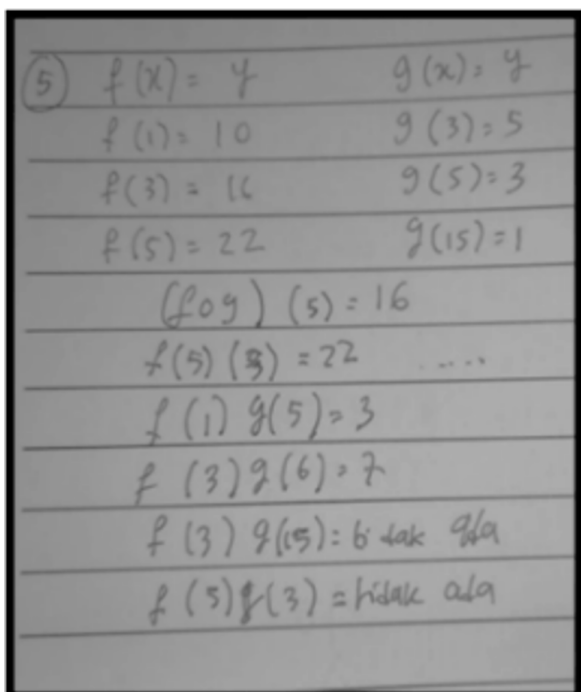 5 f(x) = y g(x) = y
f(1) = 10 g(3) = 5
f(3) = 16 g(5) = 3
f(5) = 22 g(15) = 1
(fog) (5) = 16
f(5) (3) = 22 .....
f (1) g(5) = 3
f (3) g(6) = 7
f (3) g(15) = tidak ada
f (5) g(3) = tidak ada